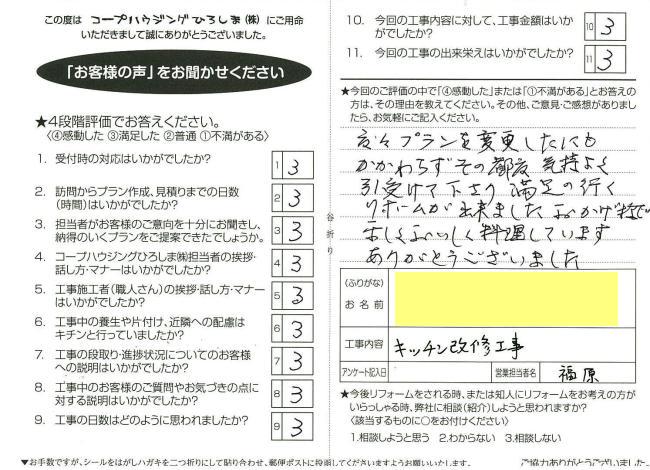 この度は コープハウジングひろしま(株) にご用命
いただきまして誠にありがとうございました。
「お客様の声」をお聞かせください
★4段階評価でお答えください。
〈④感動した ③満足した ②普通 ①不満がある〉
1. 受付時の対応はいかがでしたか?
1 3
2. 訪問からプラン作成、見積りまでの日数
(時間)はいかがでしたか?
2 3
3. 担当者がお客様のご意向を十分にお聞きし、
納得のいくプランをご提案できたでしょうか。
3 3
4. コープハウジングひろしま㈱担当者の挨拶・
話し方・マナーはいかがでしたか?
4 3
5. 工事施工者(職人さん)の挨拶・話し方・マナー
はいかがでしたか?
5 3
6. 工事中の養生や片付け、近隣への配慮は
キチンと行っていましたか?
6 3
7. 工事の段取り・進捗状況についてのお客様
への説明はいかがでしたか?
7 3
8. 工事中のお客様のご質問やお気づきの点に
対する説明はいかがでしたか?
8 3
9. 工事の日数はどのように思われましたか?
9 3
▼お手数ですが、シールをはがしハガキを二つ折りにして貼り合わせ、郵便ポストに投函してくださいますようお願いいたします。
谷折り
10. 今回の工事内容に対して、工事金額はいか
がでしたか?
10 3
11. 今回の工事の出来栄えはいかがでしたか?
11 3
★今回のご評価の中で「④感動した」または「①不満がある」とお答えの
方は、その理由を教えてください。その他、ご意見・ご感想がありまし
たら、お気軽にご記入ください。
度々プランを変更したにも
かかわらずその都度 気持よく
引受けて下さり 満足の行く
リホームが出来ました おかげ様で
楽しくおいしく料理しています
ありがとうございました
(ふりがな)
お名前
工事内容
キッチン改修工事
アンケート記入日
営業担当者名
福原
★今後リフォームをされる時、または知人にリフォームをお考えの方が
いらっしゃる時、弊社に相談(紹介)しようと思われますか?
〈該当するものに○をお付けください〉
1.相談しようと思う 2.わからない 3.相談しない
ご協力ありがとうございました。